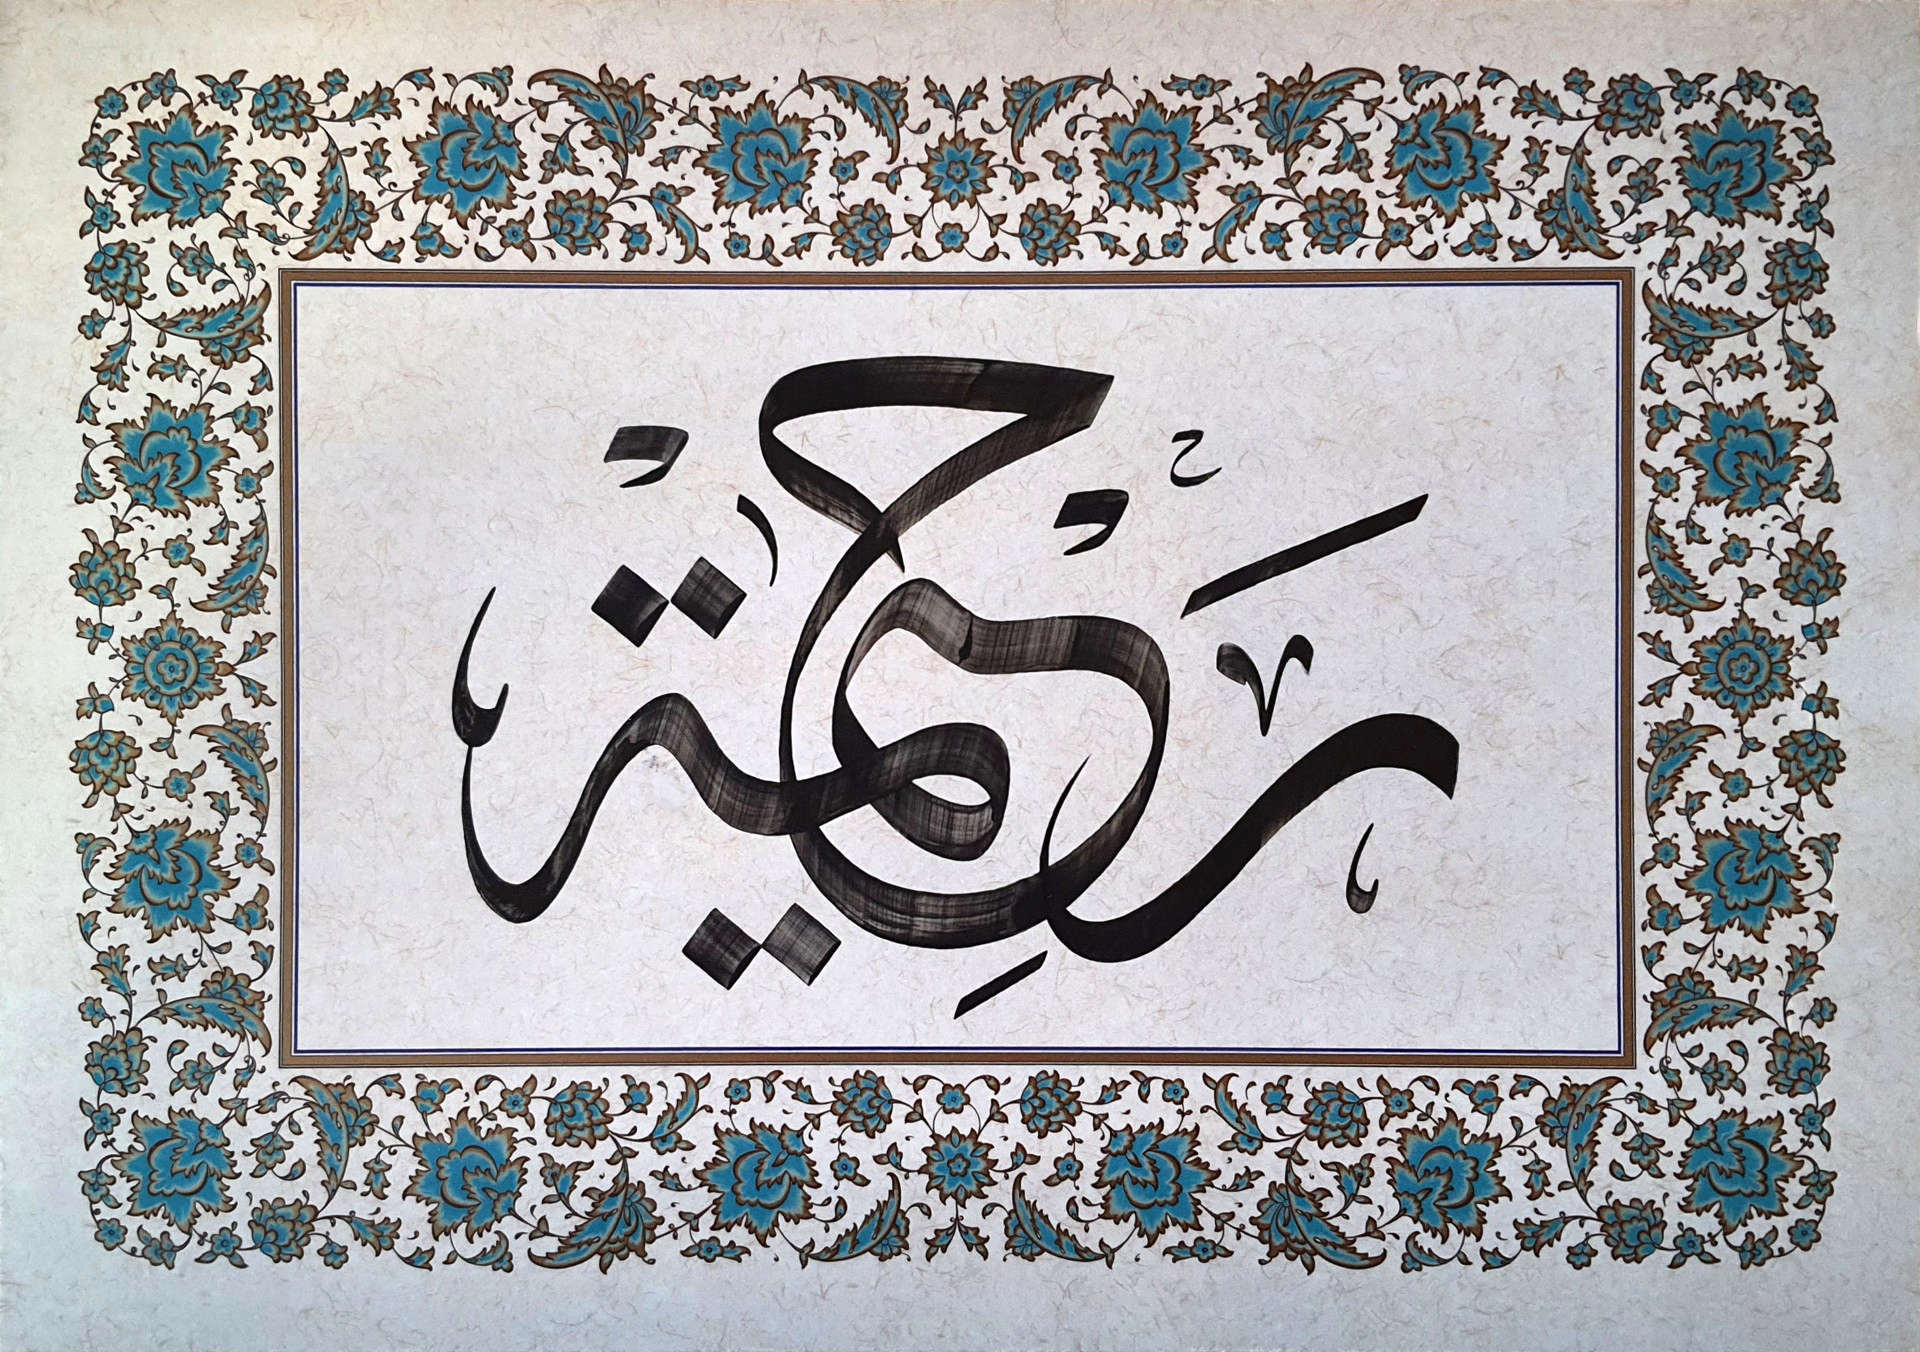 رَحِيمة